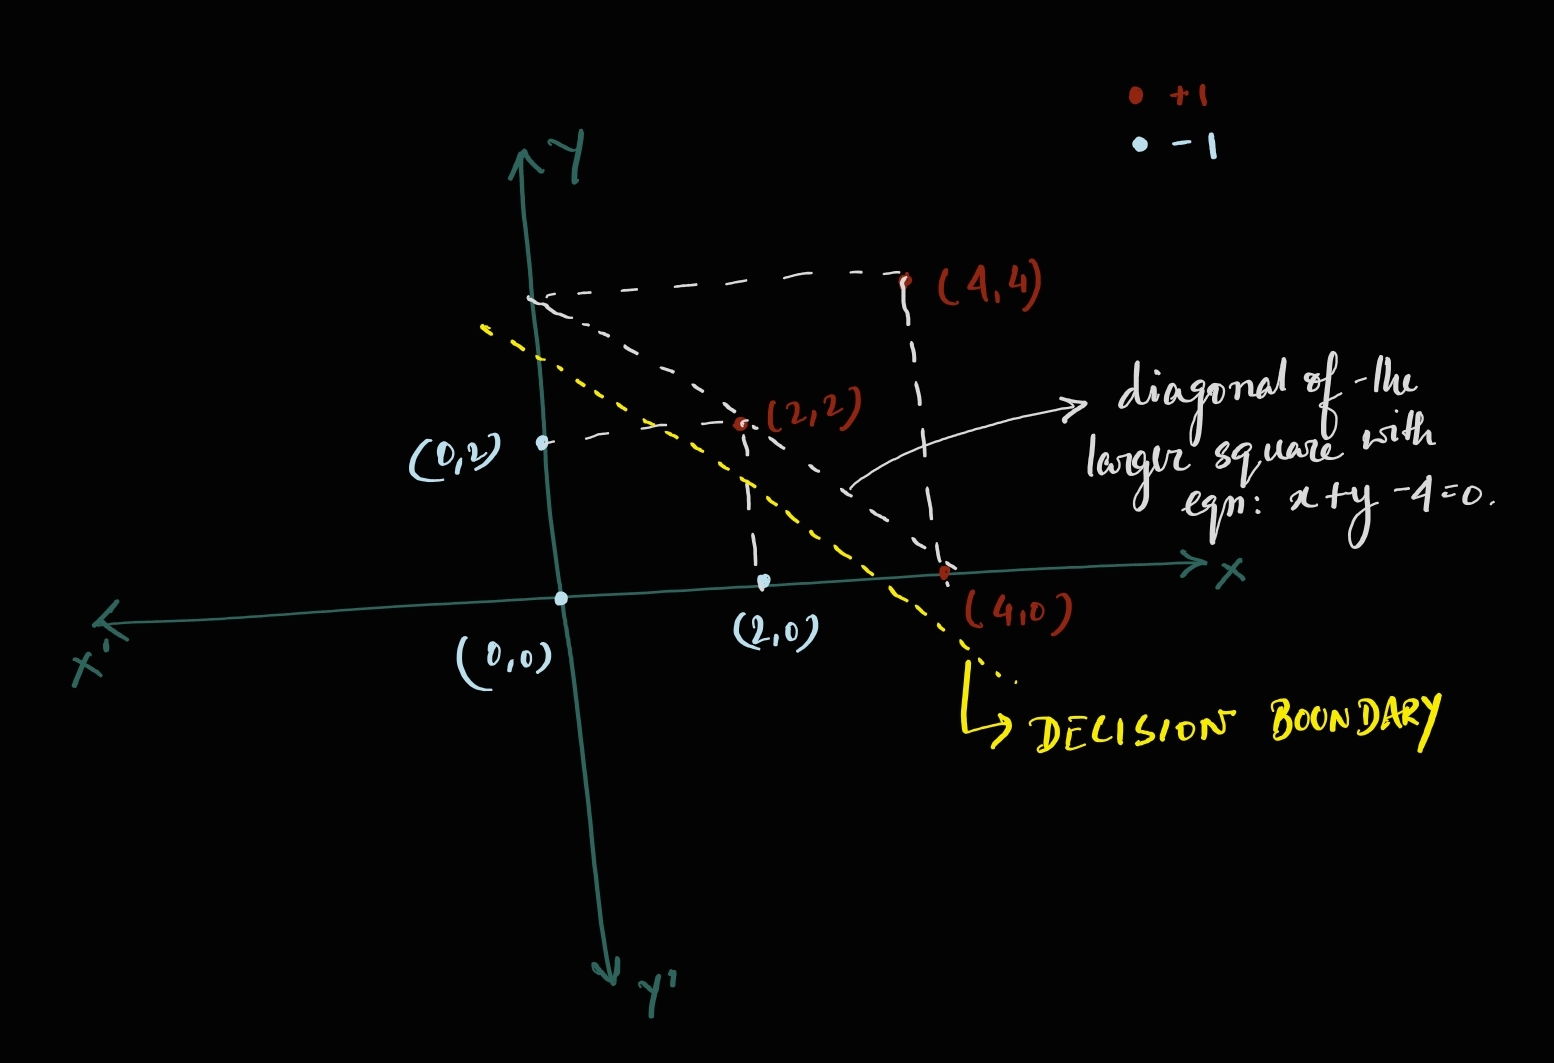 +1
-1
Y
(4,4)
diagonal of the
larger square with
eqn: x+y-4=0.
(2,2)
(0,2)
X
(4,0)
(2,0)
(0,0)
X'
DECISION BOUNDARY
Y'